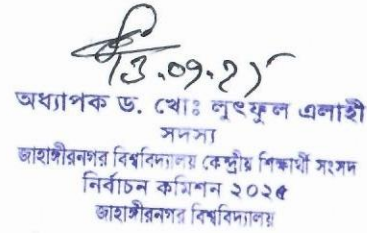 13.09.25
অধ্যাপক ড. খোঃ লুৎফুল এলাহী
সদস্য
জাহাঙ্গীরনগর বিশ্ববিদ্যালয় কেন্দ্রীয় শিক্ষার্থী সংসদ
নির্বাচন কমিশন ২০২৫
জাহাঙ্গীরনগর বিশ্ববিদ্যালয়